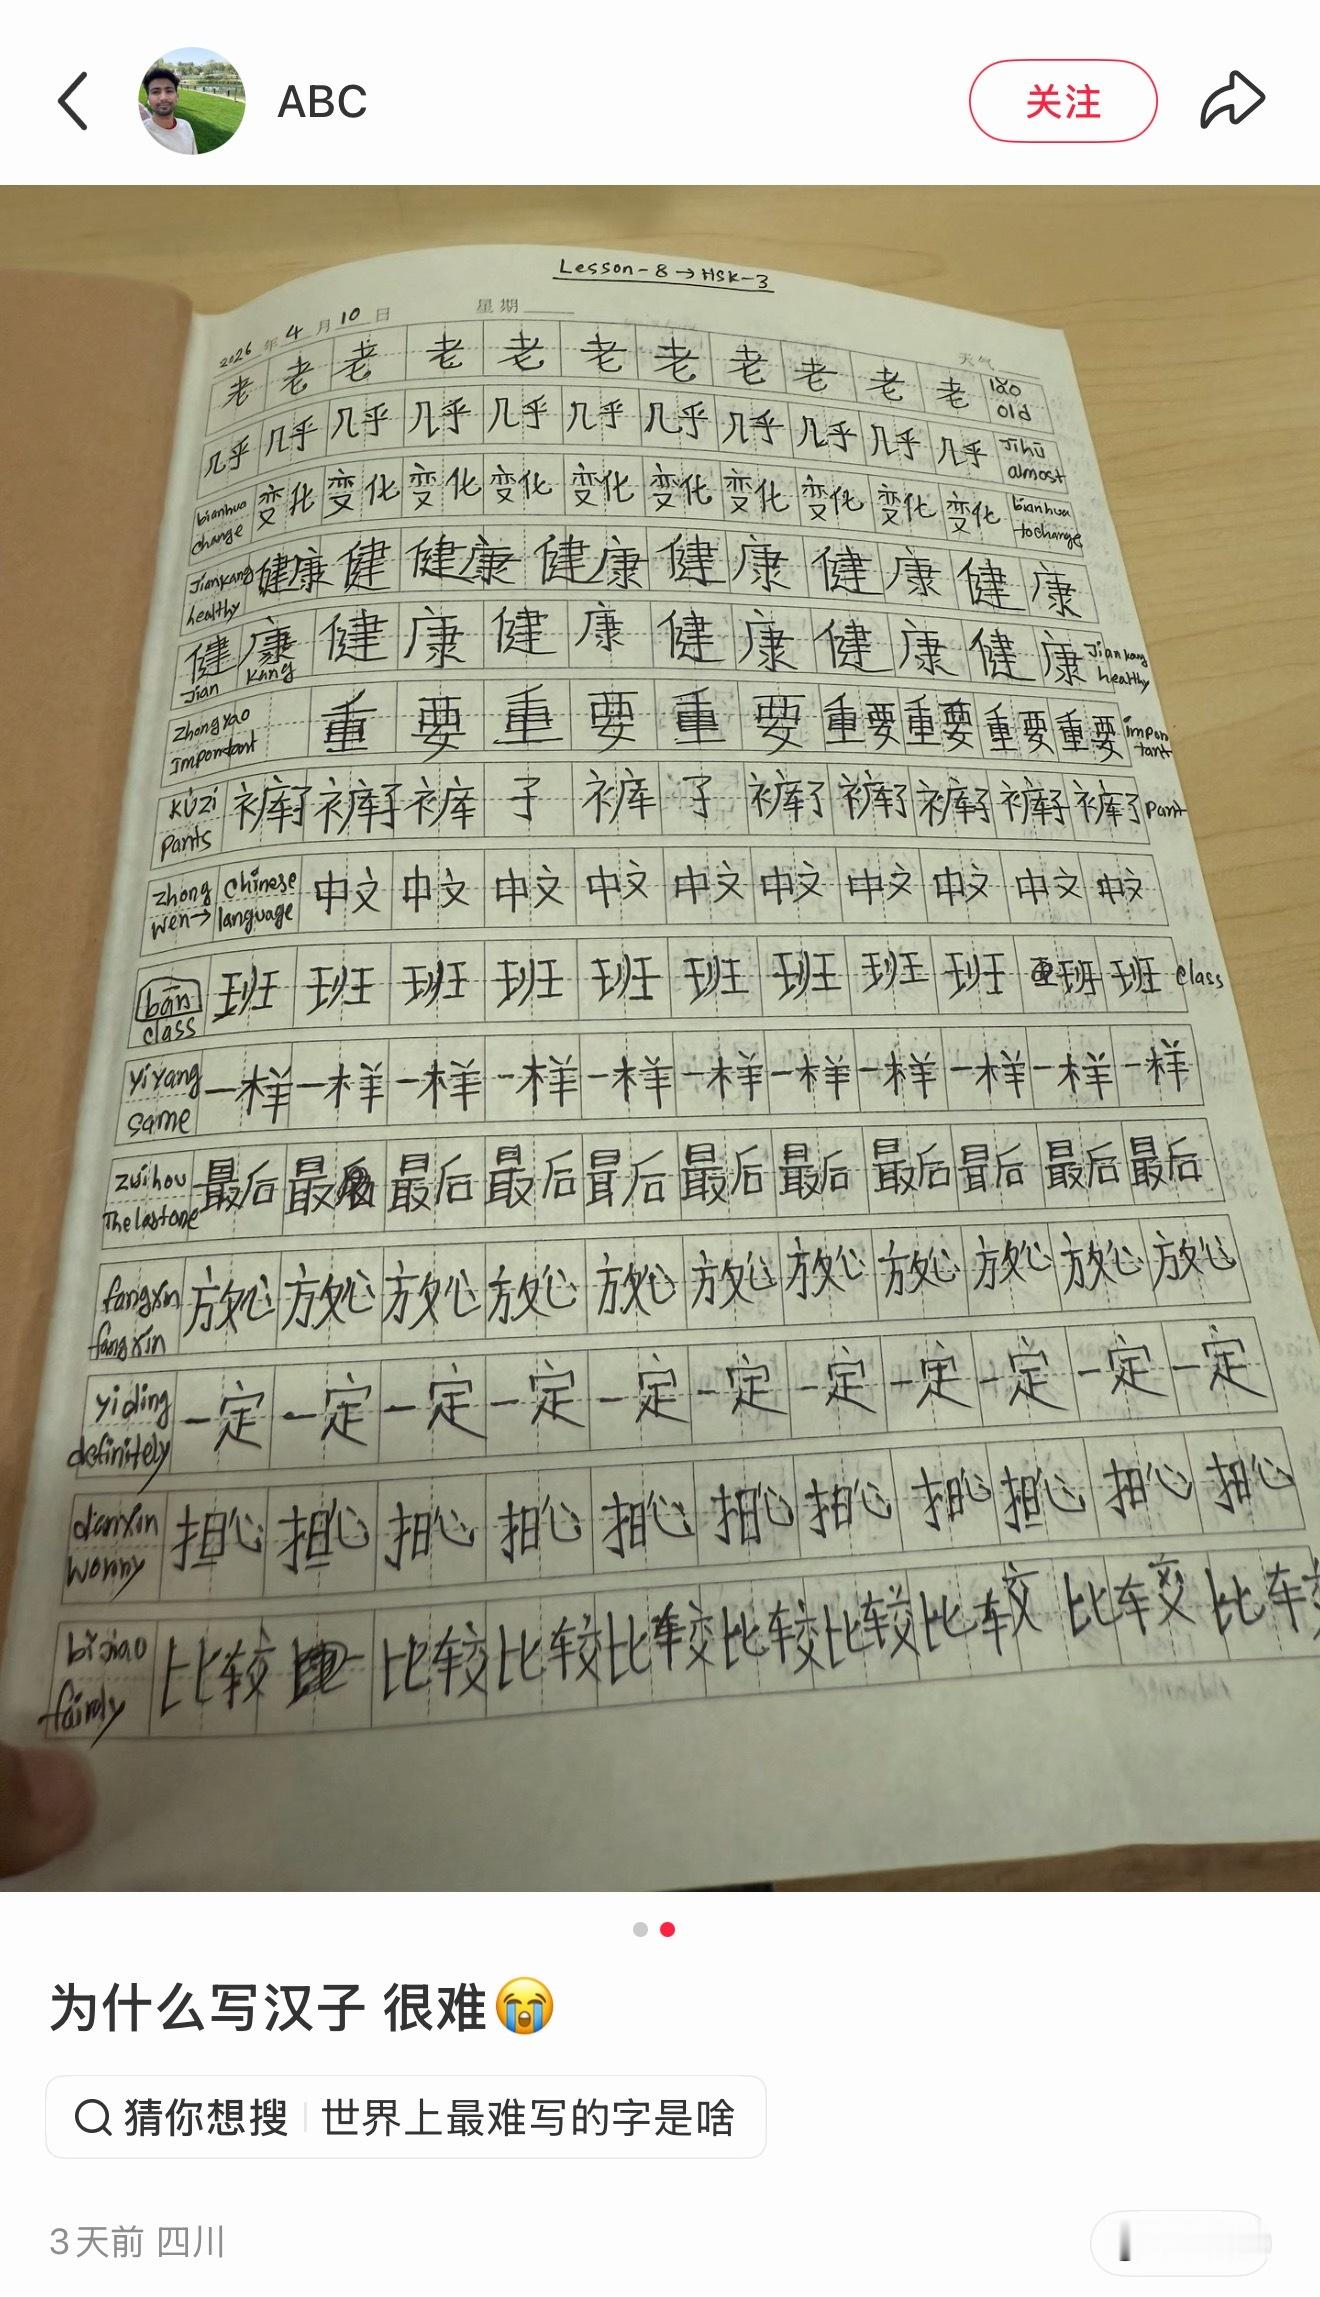 ABC 关注
Lesson-8→HSK-3
2026年4月10日 星期 天气
老 老 老 老 老 老 老 老 老 老 老 lǎo old
几乎 几乎 几乎 几乎 几乎 几乎 几乎 几乎 几乎 几乎 几乎 Jīhū almost
bianhua change 变化 变化 变化 变化 变化 变化 变化 变化 变化 变化 bianhua to change
Jiankang healthy 健康 健 健康 健康 健康 健康 健康
健康 健康 健康 健康 健康 健康 Jiankang healthy
Jian Kang
Zhongyao Important 重要 重要 重要 重要 重要 重要 重要 important
KÙZi Pants 裤子 裤子 裤子 裤子 裤子 裤子 裤子 裤子 裤子 Pant
Zhong wen→ Chinese language 中文 中文 中文 中文 中文 中文 中文 中文 中文 中文
bān class 班 班 班 班 班 班 班 班 班 班 班 class
yiyang same 一样 一样 一样 一样 一样 一样 一样 一样 一样 一样 一样
zuihou The last one 最后 最 最后 最后 最后 最后 最后 最后 最后 最后 最后
fangxin fang xin 放心 放心 放心 放心 放心 放心 放心 放心 放心 放心 放心
yiding definitely 一定 一定 一定 一定 一定 一定 一定 一定 一定 一定 一定
danxin worry 担心 担心 担心 担心 担心 担心 担心 担心 担心 担心 担心
bijiao fairly 比较 比较 比较 比较 比较 比较 比较 比较 比车
为什么写汉子 很难😭
猜你想搜 世界上最难写的字是啥
3天前 四川